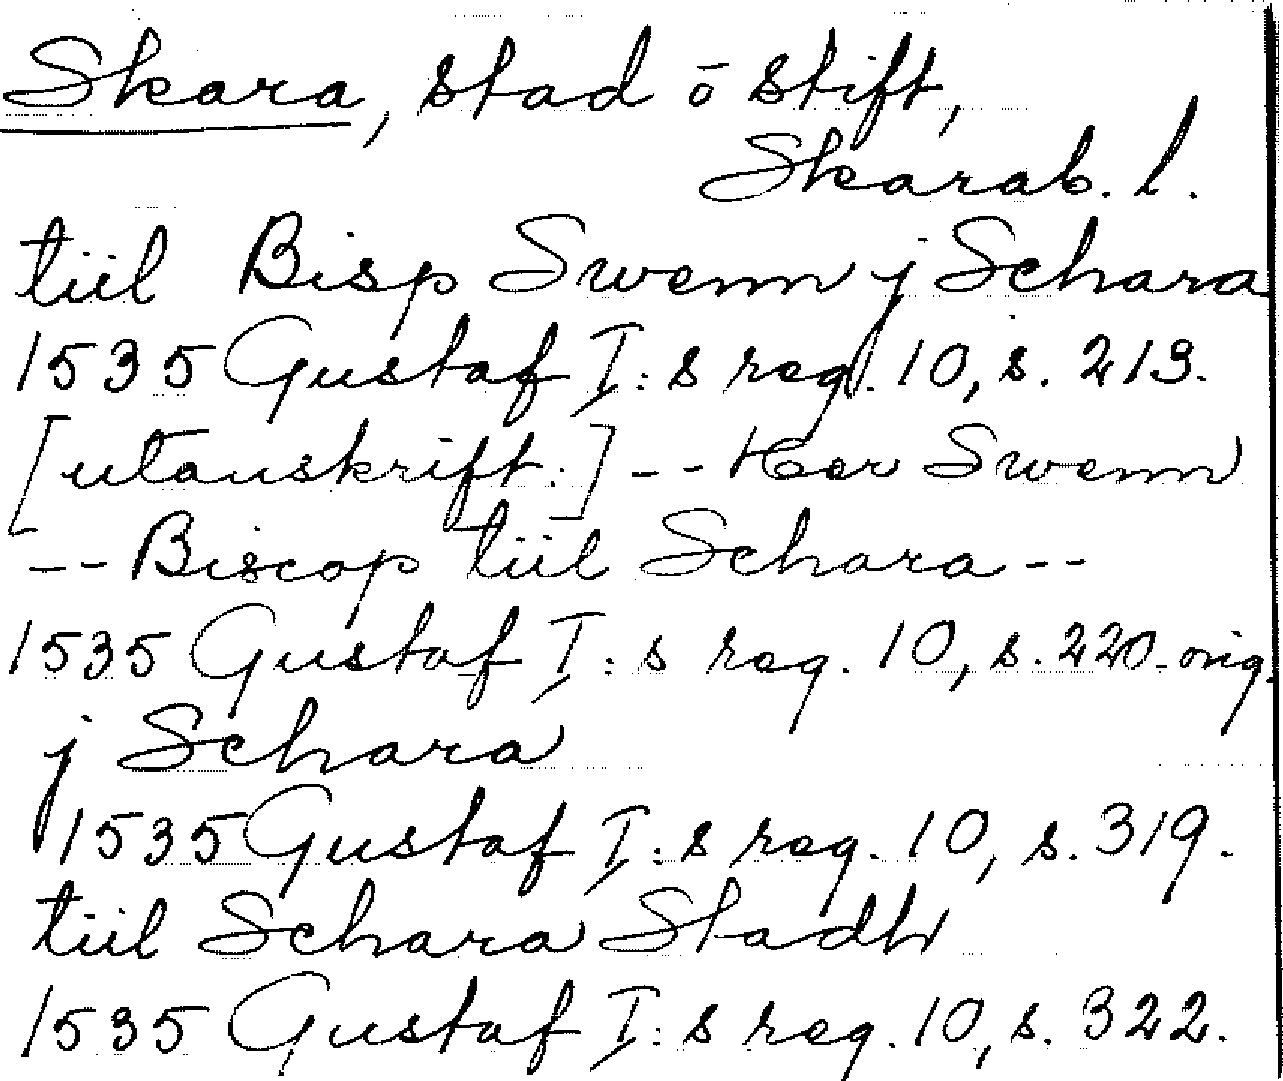 Skara, stad ō stift,
Skarab. l.
tiil Bisp Swenn j Schara
1535 Gustaf I:s reg. 10, s. 213.
[utanskrift:] -- Her Swenn
-- Biscop tiil Schara --
1535 Gustaf I:s reg. 10, s. 220. orig.
j Schara
1535 Gustaf I:s reg. 10, s. 319.
tiil Schara Stadh
1535 Gustaf I:s reg. 10, s. 322.